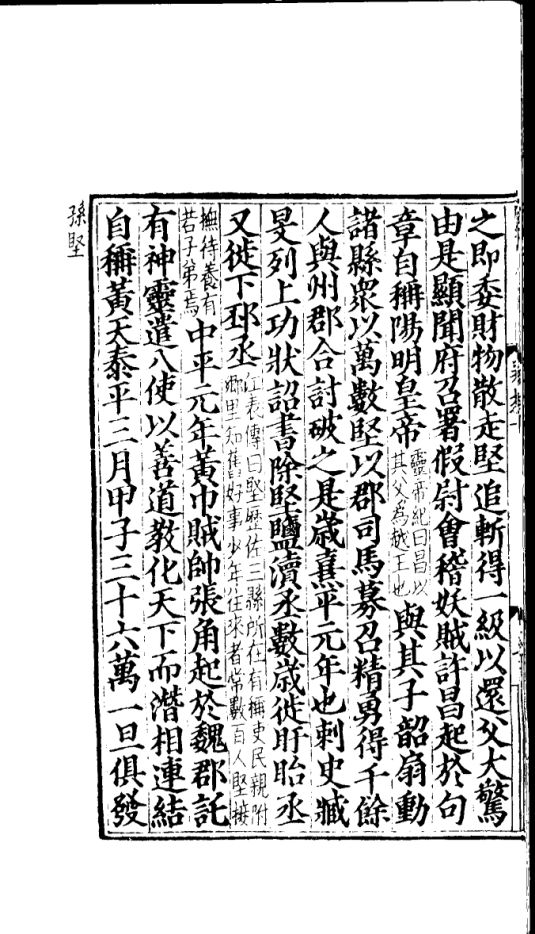 之即委財物散走堅追斬得一級以還父大驚
由是顯聞府召署假尉會稽妖賊許昌起於句
章自稱陽明皇帝
靈帝紀曰昌以
其父為越王也
與其子韶扇動
諸縣眾以萬數堅以郡司馬募召精勇得千餘
人與州郡合討破之是歲熹平元年也刺史臧
旻列上功狀詔書除堅鹽瀆丞數歲徙盱眙丞
又徙下邳丞
江表傳曰堅歷佐三縣所在有稱吏民親附
鄉里知舊好事少年往來者常數百人堅接
撫待養有
若子弟焉
中平元年黃巾賊帥張角起於魏郡託
有神靈遣八使以善道教化天下而潛相連結
自稱黃天泰平三月甲子三十六萬一旦俱發
孫堅